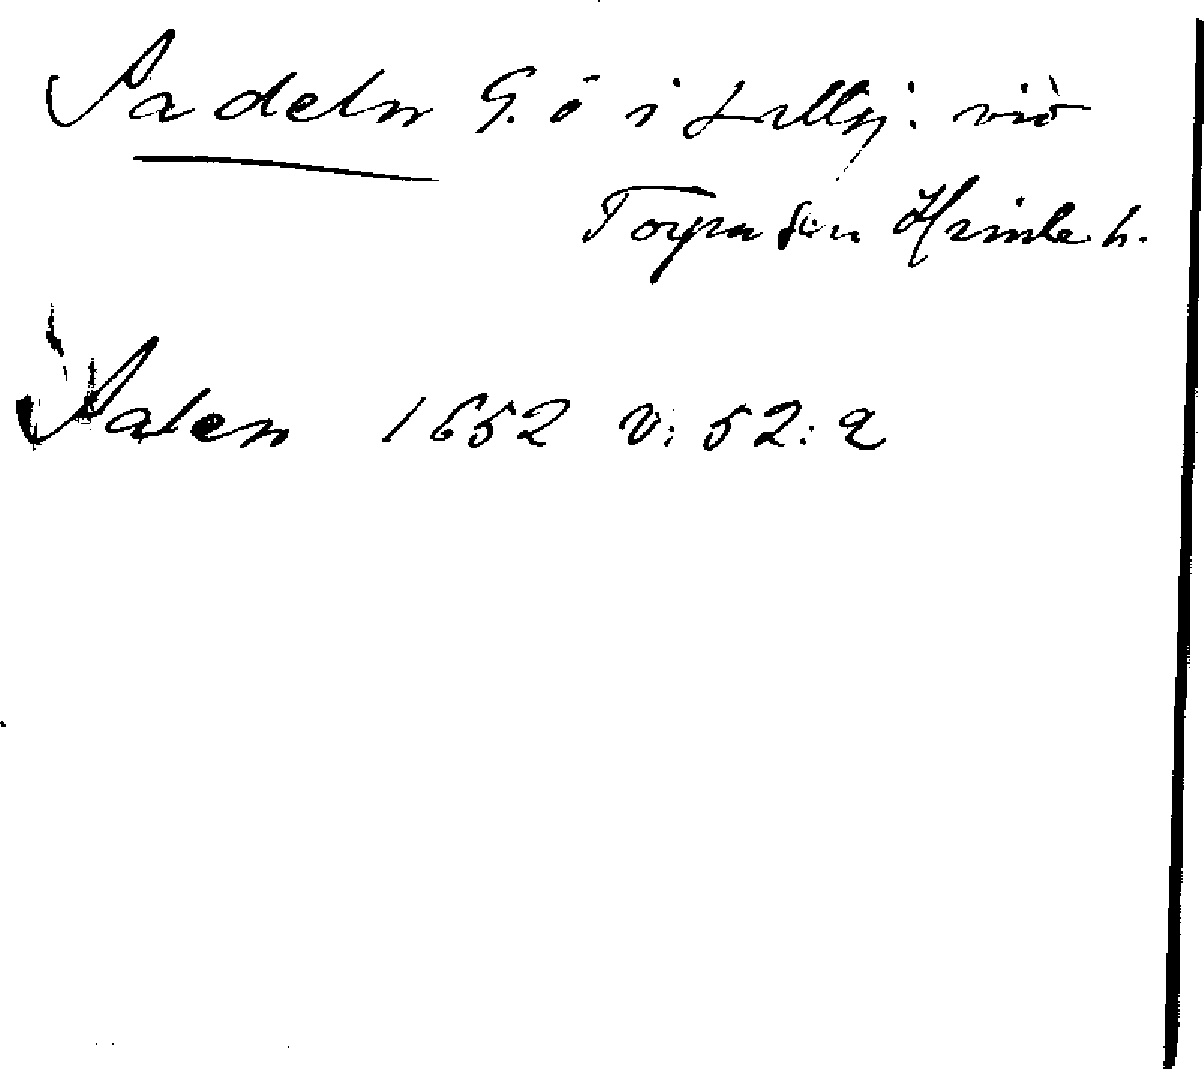 Sadeln G. ö i Lillsj. vid
Torpa Himle h.
Salen 1652 V: 52: 2